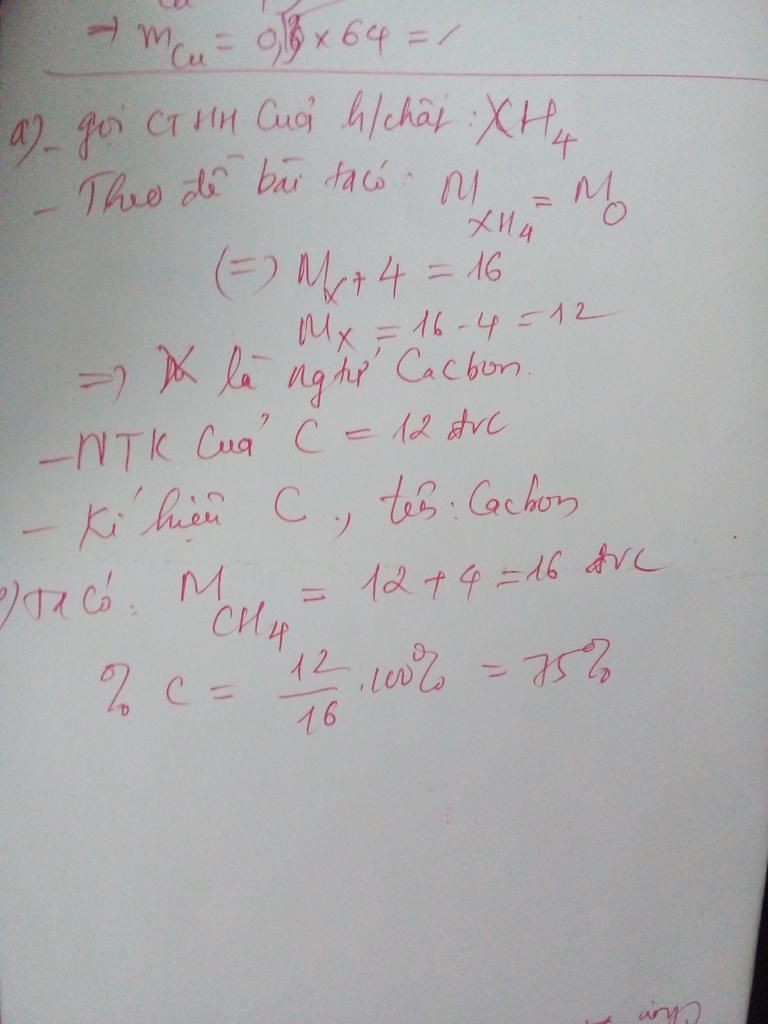 => mCu = 0,3 x 64 = 
a) - gọi CTHH Của h/chất : XH4
- Theo đề bài ta có : MXH4 = MO
(=) Mx + 4 = 16
Mx = 16 - 4 = 12
=> X là ngtử Cacbon.
- NTK Của C = 12 đvc
- Kí hiệu C , tên : Cacbon
Ta Có : MCH4 = 12 + 4 = 16 đvc
% C = 12/16 . 100% = 75%